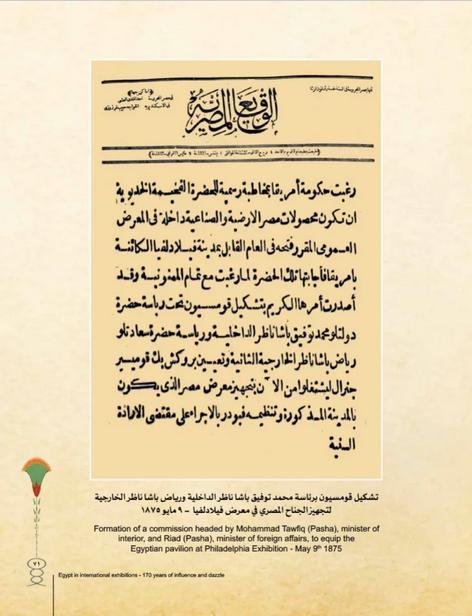 الوقائع المصرية
رغبت حكومة أمريقا بمخاطبة رسمية للحضرة الفخيمة الخديوية
ان تكون محصولات مصر الارضية والصناعية داخلة فى المعرض
العمومى المقرر فتحه فى العام القابل بمدينة فيلادلفيا الكائنة
بامريقا فأجابتها تلك الحضرة لما رغبت مع تمام الممنونية وقد
أصدرت أمرها الكريم بتشكيل قومسيون تحت رياسة حضرة
دولتلو محمد توفيق باشا ناظر الداخلية ورياسة حضرة سعادتلو
رياض باشا ناظر الخارجية الثانية وتعيين بروكش بك قوميسير
جنرال ليشتغلوا من الآن بتجهيز معرض مصر الذى يكون
بالمدينة المذكورة وتنظيمه فبودر بالاجراء على مقتضى الارادة
السنية
تشكيل قومسيون برئاسة محمد توفيق باشا ناظر الداخلية ورياض باشا ناظر الخارجية
لتجهيز الجناح المصري في معرض فيلادلفيا - ٩ مايو ١٨٧٥
Formation of a commission headed by Mohammad Tawfiq (Pasha), minister of
interior, and Riad (Pasha), minister of foreign affairs, to equip the
Egyptian pavilion at Philadelphia Exhibition - May 9th 1875
٧١
Egypt in international exhibitions - 170 years of influence and dazzle